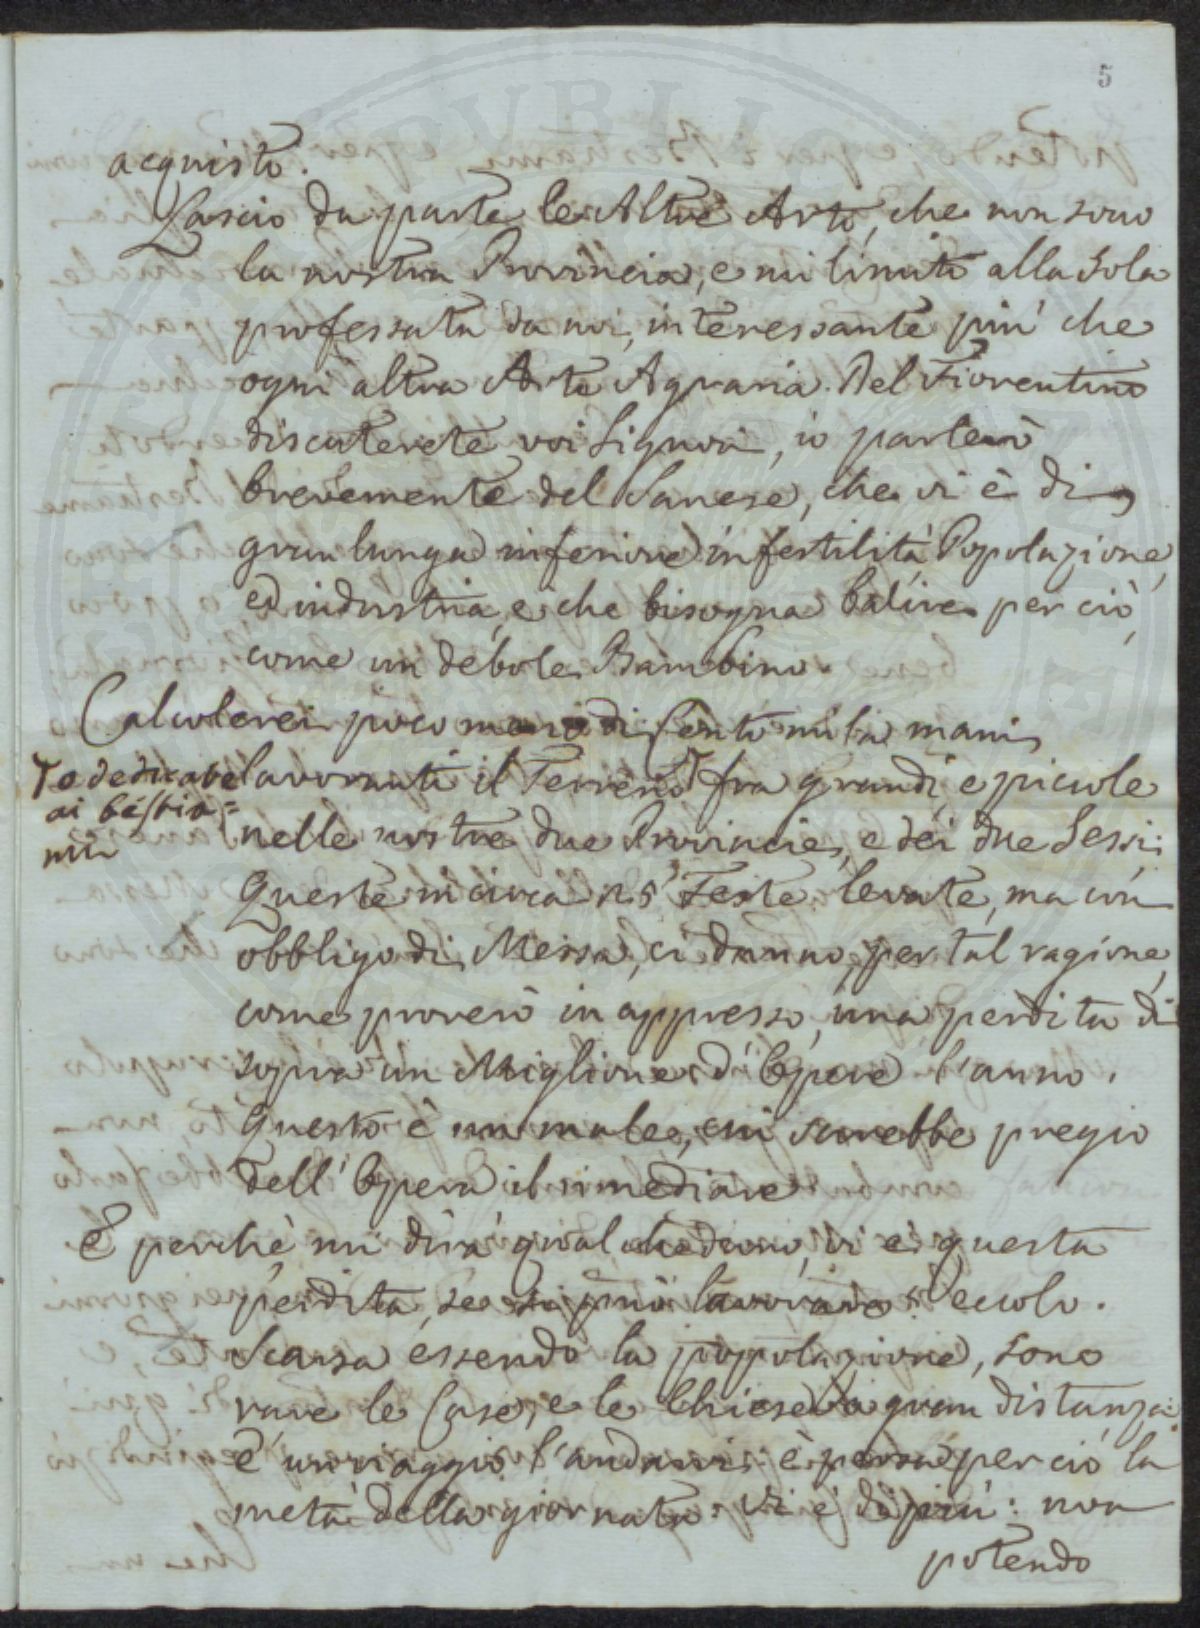 5
acquisto.
Lascio da parte le Altre Arti, che non sono
la nostra Provincia, e mi limito alla sola
professata da noi, interessante più che
ogni altra Arte Agraria. Del Fiorentino
discuterete voi Signori, io parlerò
brevemente del Sanese, che vi è di
gran lunga inferiore in fertilità Popolazione,
ed industria, e che bisogna balire per ciò,
come un debole Bambino.
Calcolerei poco meno di Cento mila mani
lavoranti il Terreno fra grandi, e piccole
o dedicate
ai bestia=
mi
nelle nostre due Provincie, e dei due Sessi:
Queste in circa 25 Feste levate, ma con
obbligo di Messa, ci danno, per tal ragione,
come proverò in appresso, una perdita di
sopra un Miglione d'Opere l'anno.
Questo è un male, cui sarebbe pregio
dell'Opera il rimediare
E perchè, mi dirà qualcheduno, vi è questa
perdita, se si può lavorare? Eccolo.
Scarsa essendo la popolazione, sono
rare le Case, e le Chiese a gran distanza:
E' un viaggio l'andarvi: è persa perciò la
metà della giornata: vi è di più: non
potendo